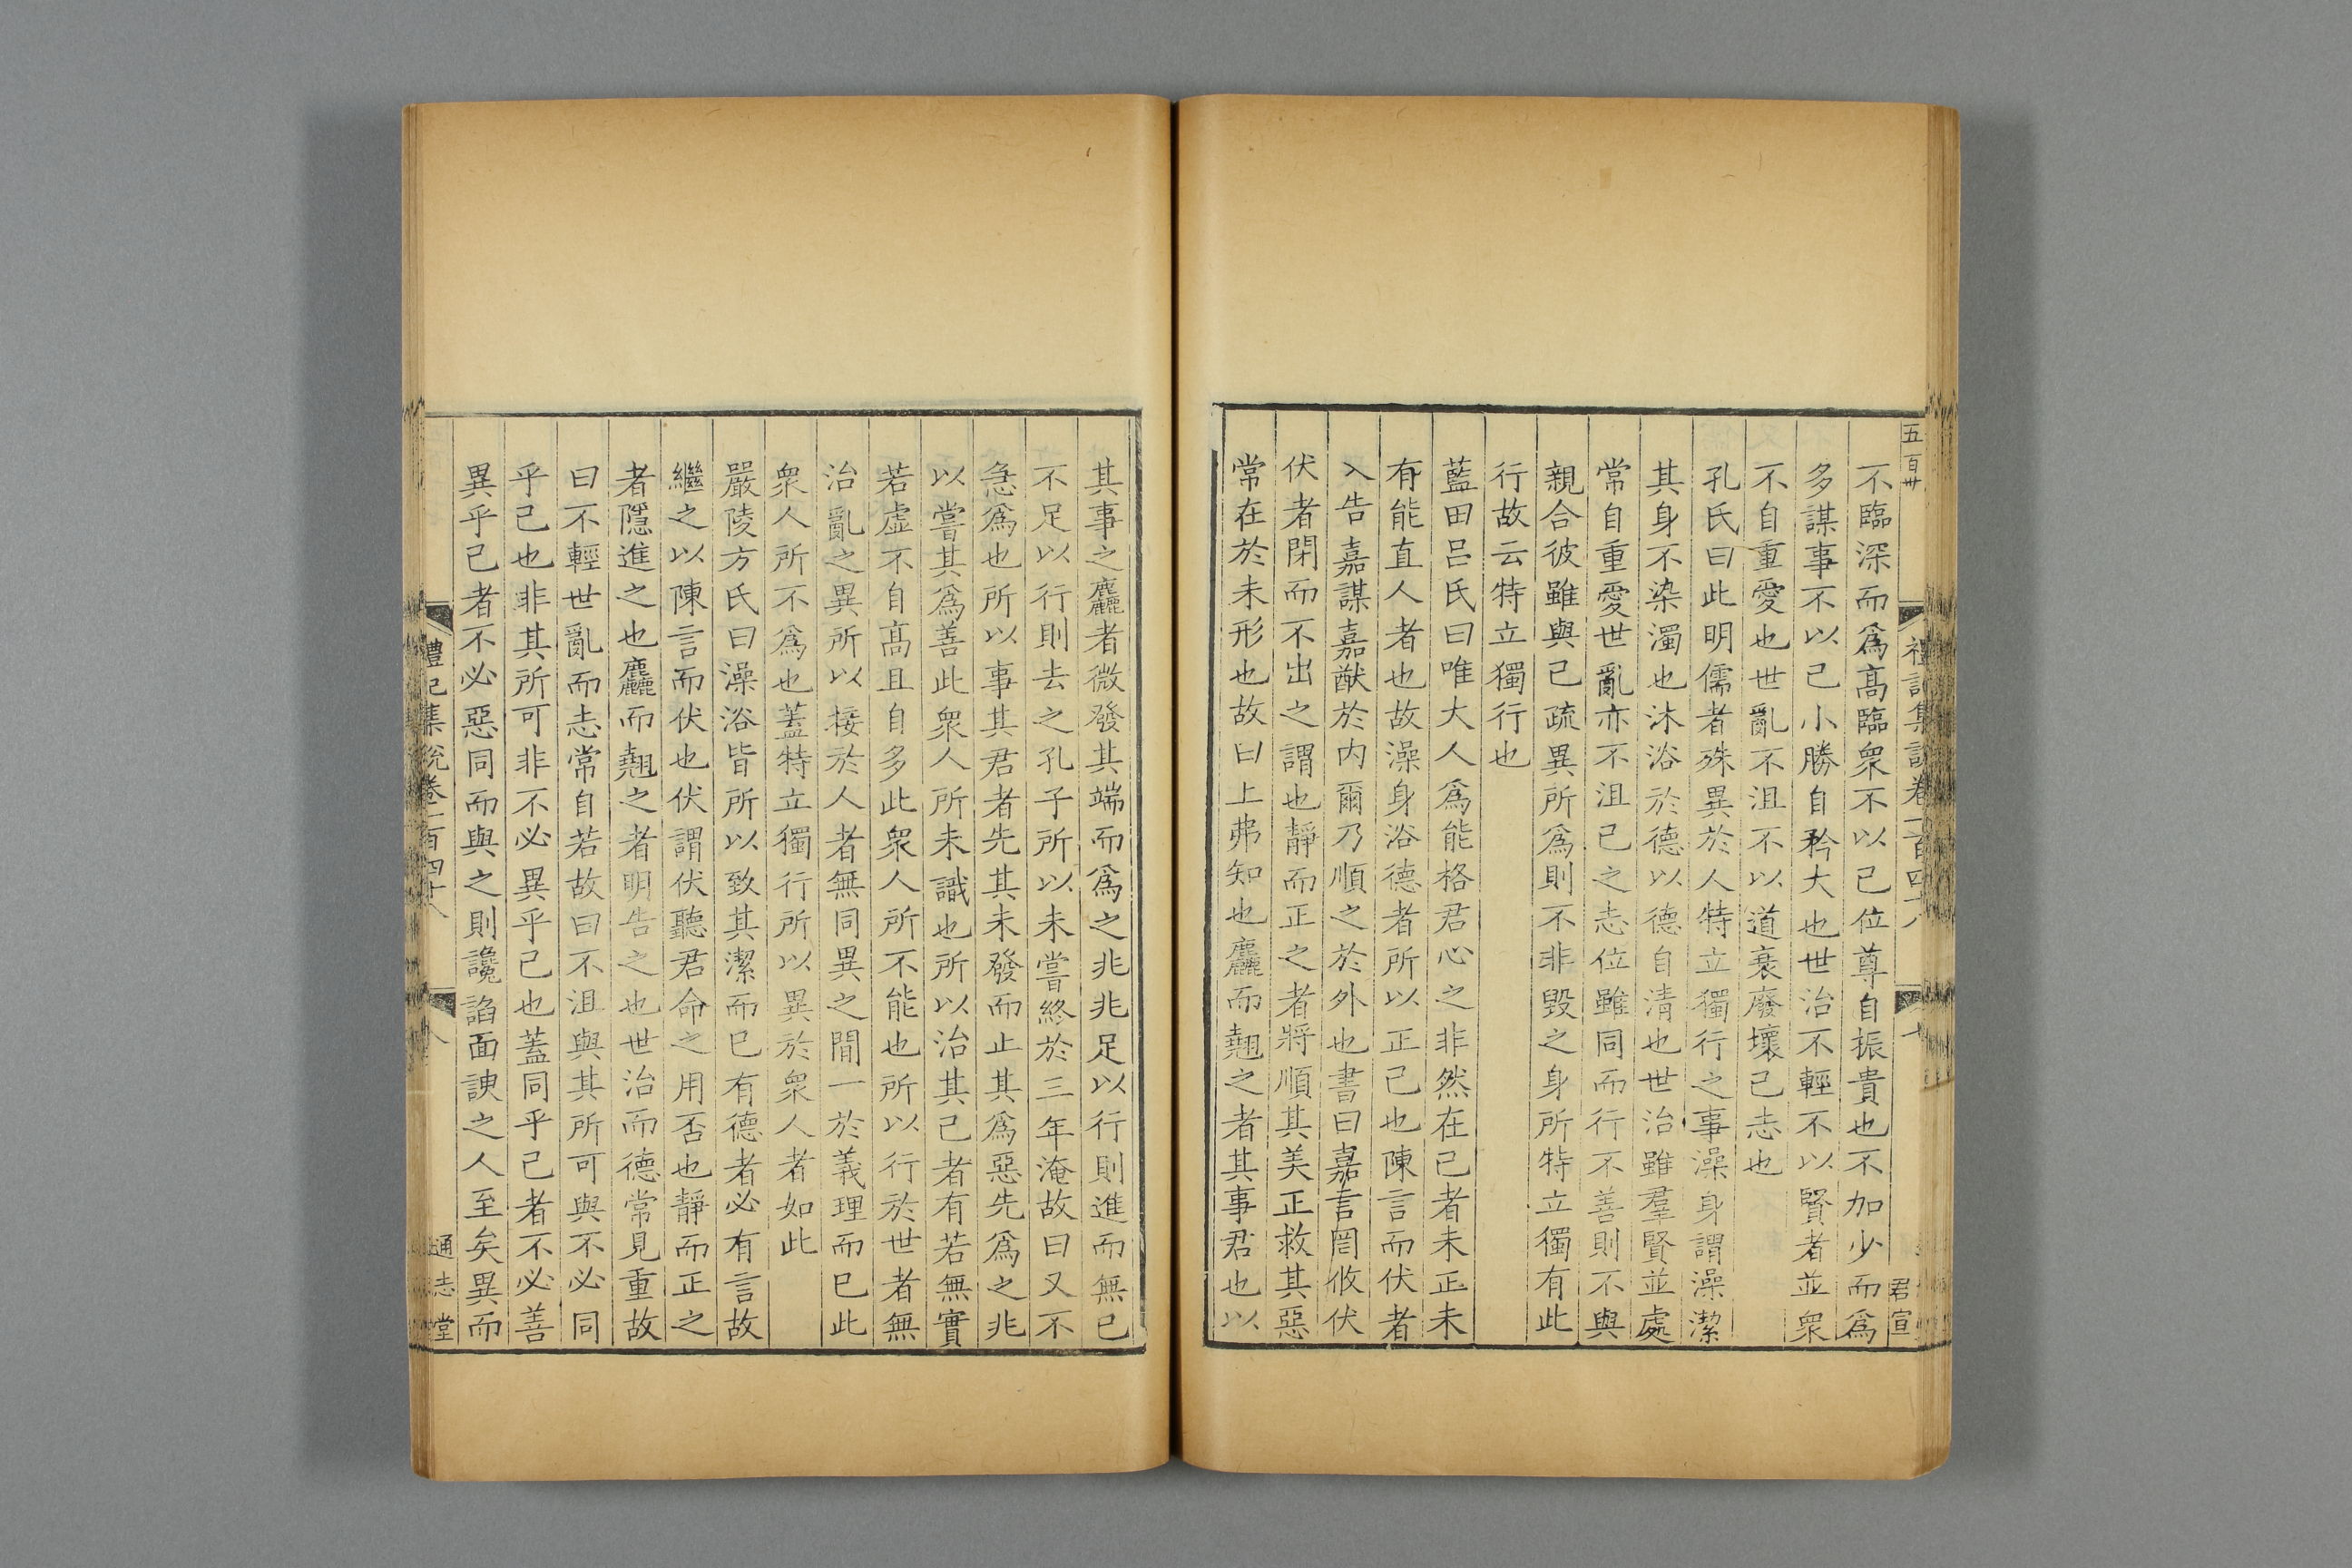 五百卅
禮記集說卷一百四十八
七
君宣
不臨深而爲髙臨衆不以己位尊自振貴也不加少而爲
多謀事不以己小勝自矜大也世治不輕不以賢者並衆
不自重愛也世亂不沮不以道衰廢壞己志也
孔氏曰此明儒者殊異於人特立獨行之事澡身謂澡潔
其身不染濁也沐浴於德以德自清也世治雖羣賢並處
常自重愛世亂亦不沮己之志位雖同而行不善則不與
親合彼雖與己疏異所爲則不非毀之身所特立獨有此
行故云特立獨行也
藍田呂氏曰唯大人爲能格君心之非然在己者未正未
有能直人者也故澡身浴德者所以正己也陳言而伏者
入告嘉謀嘉猷於内爾乃順之於外也書曰嘉言罔攸伏
伏者閉而不出之謂也靜而正之者將順其美正救其惡
常在於未形也故曰上弗知也麤而翹之者其事君也以
其事之麤者微發其端而爲之兆兆足以行則進而無已
不足以行則去之孔子所以未嘗終於三年淹故曰又不
急爲也所以事其君者先其未發而止其爲惡先爲之兆
以嘗其爲善此衆人所未識也所以治其己者有若無實
若虛不自髙且自多此衆人所不能也所以行於世者無
治亂之異所以接於人者無同異之間一於義理而已此
衆人所不爲也蓋特立獨行所以異於衆人者如此
嚴陵方氏曰澡浴皆所以致其潔而已有德者必有言故
繼之以陳言而伏也伏謂伏聽君命之用否也靜而正之
者隱進之也麤而翹之者明告之也世治而德常見重故
曰不輕世亂而志常自若故曰不沮與其所可與不必同
乎己也非其所可非不必異乎己也蓋同乎己者不必善
異乎己者不必惡同而與之則讒諂面諛之人至矣異而
禮記集說卷一百四十八
八
通志堂